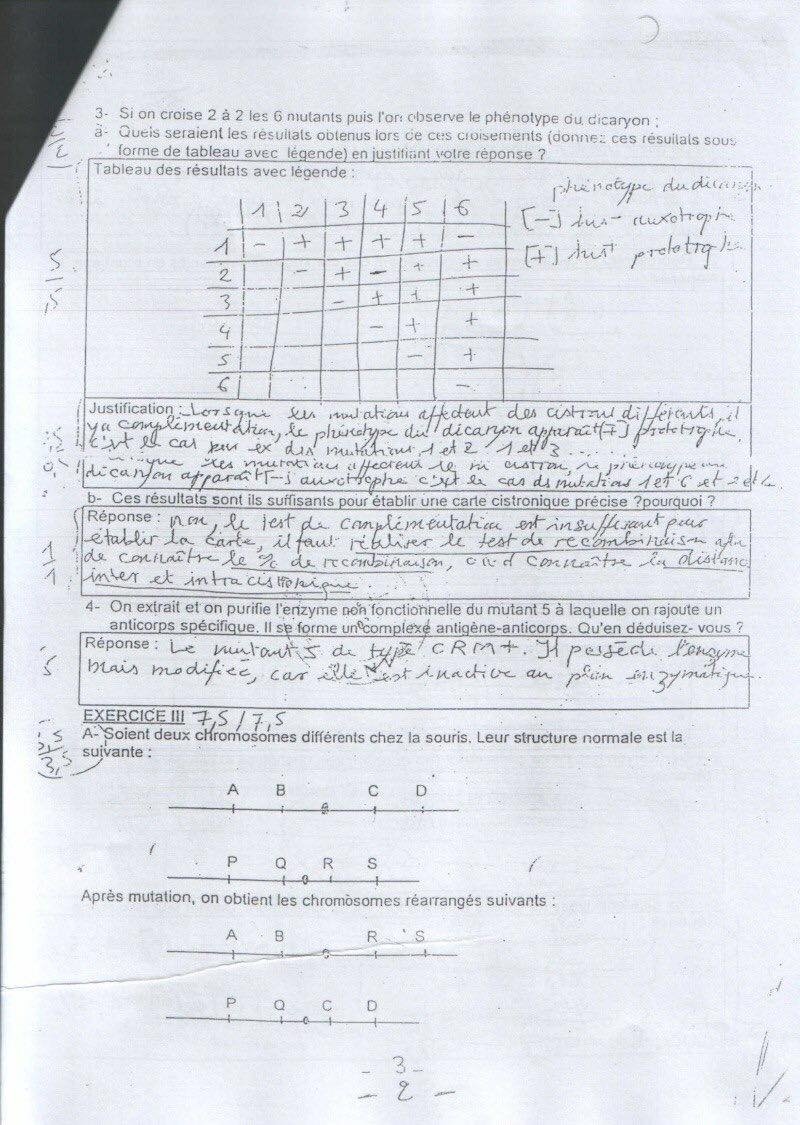 3- Si on croise 2 à 2 les 6 mutants puis l'on observe le phénotype du dicaryon :
a- Quels seraient les résultats obtenus lors de ces croisements (donnez ces résultats sous
forme de tableau avec légende) en justifiant votre réponse ?
Tableau des résultats avec légende :
phénotype du dicaryon
1 2 3 4 5 6
[-] auxotrophe
1 - + + + + -
[+] prototrophe
2 - + - + +
3 - + + +
4 - + +
5 - +
6 -
5
Justification : Lorsque les mutations affectent des cistrons différents, il
y a complémentation, le phénotype du dicaryon apparaît [+] prototrophe,
c'est le cas par ex des mutations 1 et 2 1 et 3 ......
les mutations affectent le m cistron, le phénotype
dicaryon apparaît [-] auxotrophe c'est le cas d mutations 1 et 6 et 2 et 4
b- Ces résultats sont ils suffisants pour établir une carte cistronique précise ?pourquoi ?
Réponse : non, le test de complémentation est insuffisant pour
établir la carte, il faut réaliser le test de recombinaison afin
de connaître le % de recombinaison, càd connaître la distance
inter et intracistronique.
1
1
4- On extrait et on purifie l'enzyme non fonctionnelle du mutant 5 à laquelle on rajoute un
anticorps spécifique. Il se forme un complexe antigène-anticorps. Qu'en déduisez- vous ?
Réponse : Le mutant 5 de type CRM+. Il possède l'enzyme
mais modifiée, car elle est inactive au plan enzymatique.
5
EXERCICE III 7,5 / 7,5
A- Soient deux chromosomes différents chez la souris. Leur structure normale est la
suivante :
3,5
A B C D
P Q R S
Après mutation, on obtient les chromosomes réarrangés suivants :
A B R S
P Q C D
- 3 -
- 2 -